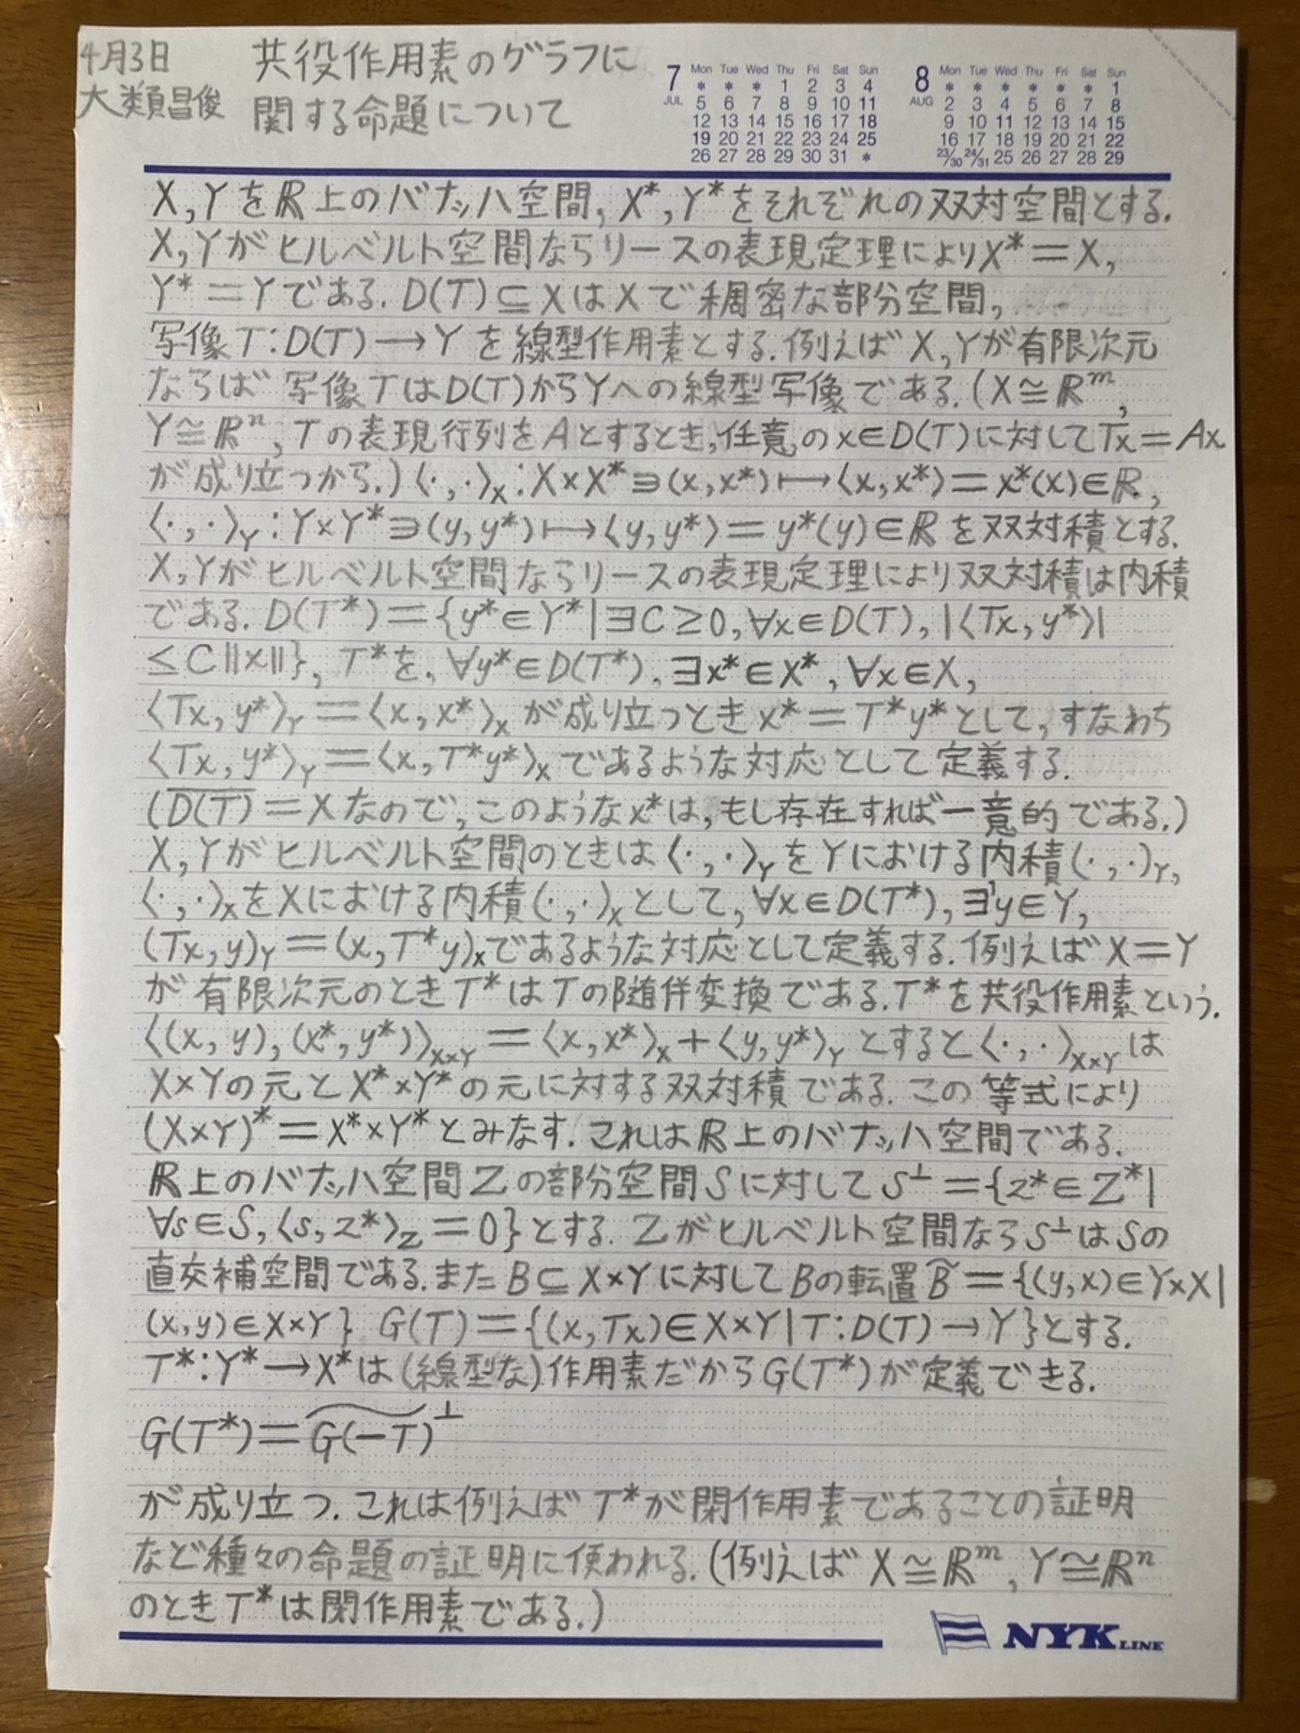 4月3日
大類昌俊
共役作用素のグラフに
関する命題について
7 JUL
Mon Tue Wed Thu Fri Sat Sun
* * * 1 2 3 4
5 6 7 8 9 10 11
12 13 14 15 16 17 18
19 20 21 22 23 24 25
26 27 28 29 30 31 *
8 AUG
Mon Tue Wed Thu Fri Sat Sun
* * * * * * 1
2 3 4 5 6 7 8
9 10 11 12 13 14 15
16 17 18 19 20 21 22
23/30 24/31 25 26 27 28 29
X,Yをℝ上のバナッハ空間, X*,Y*をそれぞれの双対空間とする.
X,Yがヒルベルト空間ならリースの表現定理によりX*=X,
Y*=Yである. D(T)⊆XはXで稠密な部分空間,
写像T:D(T)→Yを線型作用素とする. 例えばX,Yが有限次元
ならば写像TはD(T)からYへの線型写像である. (X≅ℝᵐ,
Y≅ℝⁿ, Tの表現行列をAとするとき, 任意のx∈D(T)に対してTx=Ax
が成り立つから.) ⟨・,・⟩_X:X×X*∋(x,x*)⟼⟨x,x*⟩=x*(x)∈ℝ,
⟨・,・⟩_Y:Y×Y*∋(y,y*)⟼⟨y,y*⟩=y*(y)∈ℝを双対積とする.
X,Yがヒルベルト空間ならリースの表現定理により双対積は内積
である. D(T*)={y*∈Y*|∃C≥0,∀x∈D(T),|⟨Tx,y*⟩|
≤C‖x‖}, T*を, ∀y*∈D(T*), ∃x*∈X*, ∀x∈X,
⟨Tx,y*⟩_Y=⟨x,x*⟩_Xが成り立つときx*=T*y*として, すなわち
⟨Tx,y*⟩_Y=⟨x,T*y*⟩_Xであるような対応として定義する.
(D̅(̅T̅)̅=Xなので, このようなx*は, もし存在すれば一意的である.)
X,Yがヒルベルト空間のときは⟨・,・⟩_YをYにおける内積(・,・)_Y,
⟨・,・⟩_XをXにおける内積(・,・)_Xとして, ∀x∈D(T*), ∃¹y∈Y,
(Tx,y)_Y=(x,T*y)_Xであるような対応として定義する. 例えばX=Y
が有限次元のときT*はTの随伴変換である. T*を共役作用素という.
⟨(x,y),(x*,y*)⟩_X×Y=⟨x,x*⟩_X+⟨y,y*⟩_Yとすると⟨・,・⟩_X×Yは
X×Yの元とX*×Y*の元に対する双対積である. この等式により
(X×Y)*=X*×Y*とみなす. これはℝ上のバナッハ空間である.
ℝ上のバナッハ空間Zの部分空間Sに対してS^⊥={z*∈Z*|
∀s∈S,⟨s,z*⟩_Z=0}とする. Zがヒルベルト空間ならS^⊥はSの
直交補空間である. またB⊆X×Yに対してBの転置B̃={(y,x)∈Y×X|
(x,y)∈X×Y} G(T)={(x,Tx)∈X×Y|T:D(T)→Y}とする.
T*:Y*→X*は(線型な)作用素だからG(T*)が定義できる.
G(T*)=\widetilde{G(-T)}^⊥
が成り立つ. これは例えばT*が閉作用素であることの証明
など種々の命題の証明に使われる. (例えばX≅ℝᵐ, Y≅ℝⁿ
のときT*は閉作用素である.)
NYK LINE